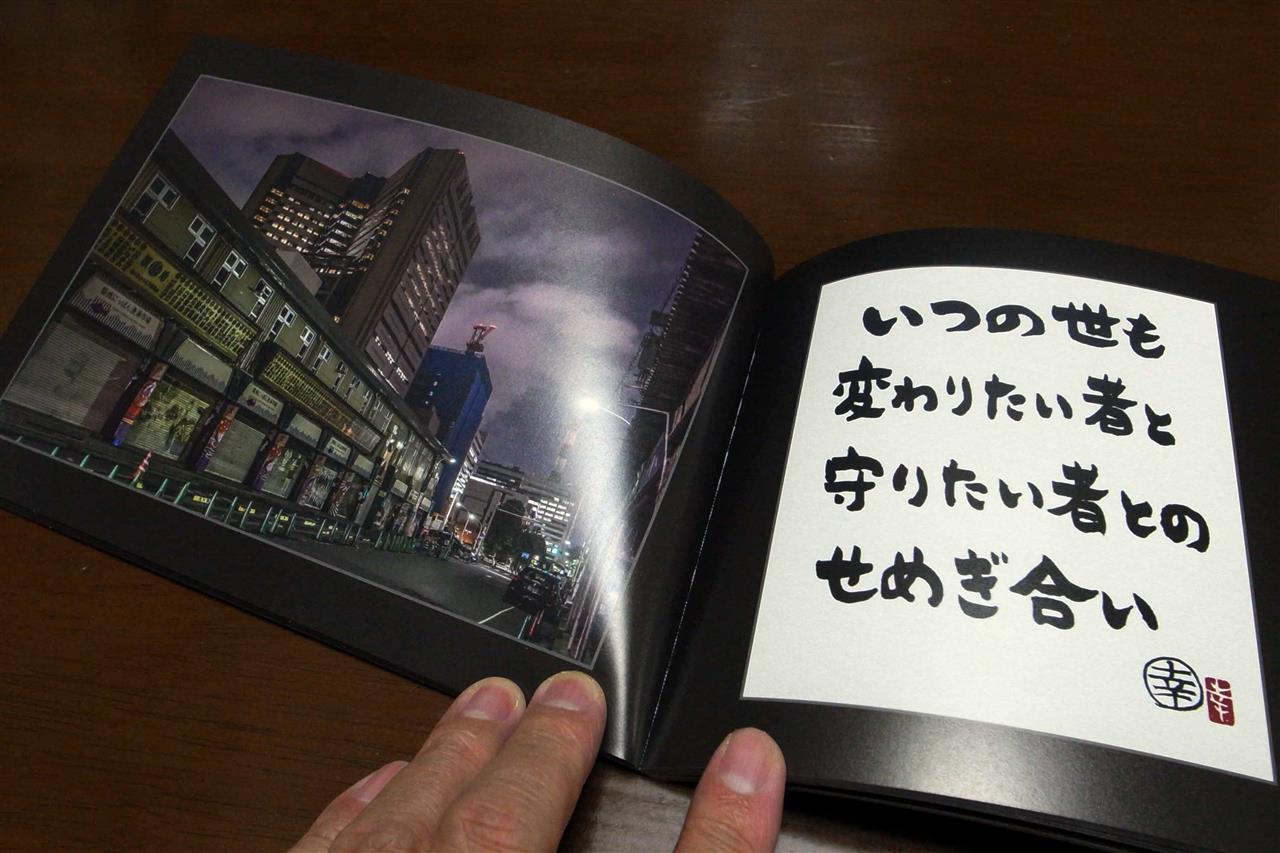 いつの世も
変わりたい者と
守りたい者との
せめぎ合い
幸